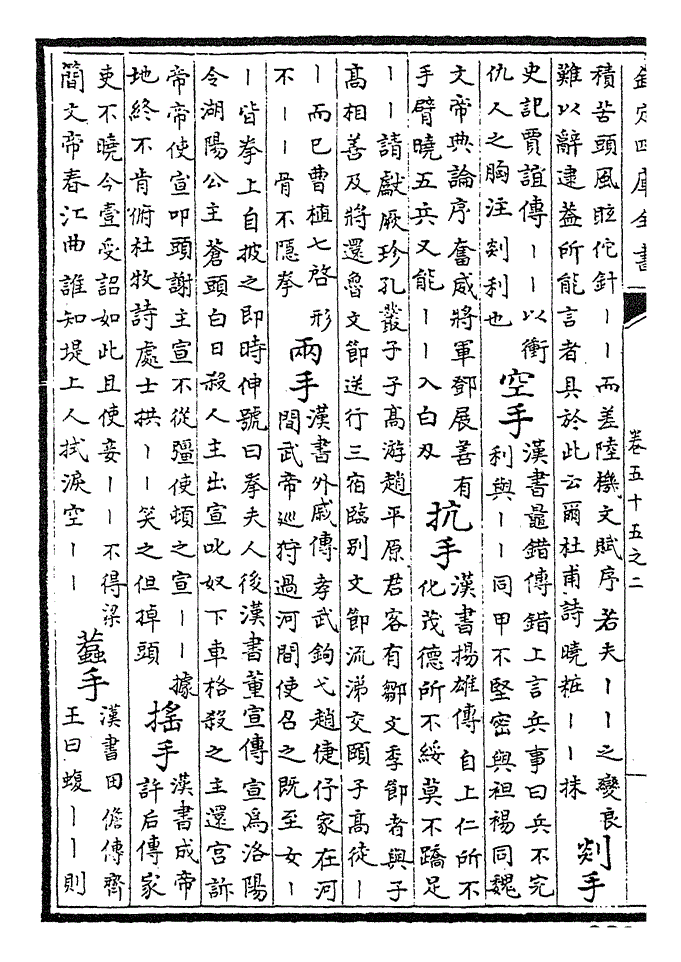 欽定四庫全書
卷五十五之二
積苦頭風眩佗針丨丨而差陸機文賦序若夫丨丨之變良
難以辭逮蓋所能言者具於此云爾杜甫詩曉粧丨丨抹
剡手
史記賈誼傳丨丨以衝
仇人之胸注剡利也
空手
漢書鼂錯傳錯上言兵事曰兵不完
利與丨丨同甲不堅密與袒裼同魏
文帝典論序奮威將軍鄧展善有
手臂曉五兵又能丨丨入白刃
抗手
漢書揚雄傳自上仁所不
化茂德所不綏莫不蹻足
丨丨請獻厥珍孔叢子子高游趙平原君客有鄒文季節者與子
高相善及將還魯文節送行三宿臨别文節流涕交頤子高徒丨
丨而已曹植七啓形
不丨丨骨不隱拳
兩手
漢書外戚傳孝武鉤弋趙倢伃家在河
間武帝巡狩過河間使召之既至女丨
丨皆拳上自披之即時伸號曰拳夫人後漢書董宣傳宣爲洛陽
令湖陽公主蒼頭白日殺人主出宣叱奴下車格殺之主還宮訴
帝帝使宣叩頭謝主宣不從彊使頓之宣丨丨據
地終不肯俯杜牧詩處士拱丨丨笑之但掉頭
搖手
漢書成帝
許后傳家
吏不曉今壹受詔如此且使妾丨丨不得梁
簡文帝春江曲誰知堤上人拭淚空丨丨
蠚手
漢書田儋傳齊
王曰蝮丨丨則